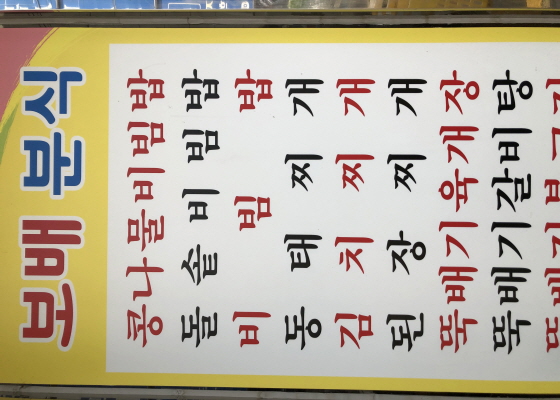 보배 분식
콩나물비빔밥
돌솥비빔밥
비빔밥
동태찌개
김치찌개
된장찌개
뚝배기육개장
뚝배기갈비탕